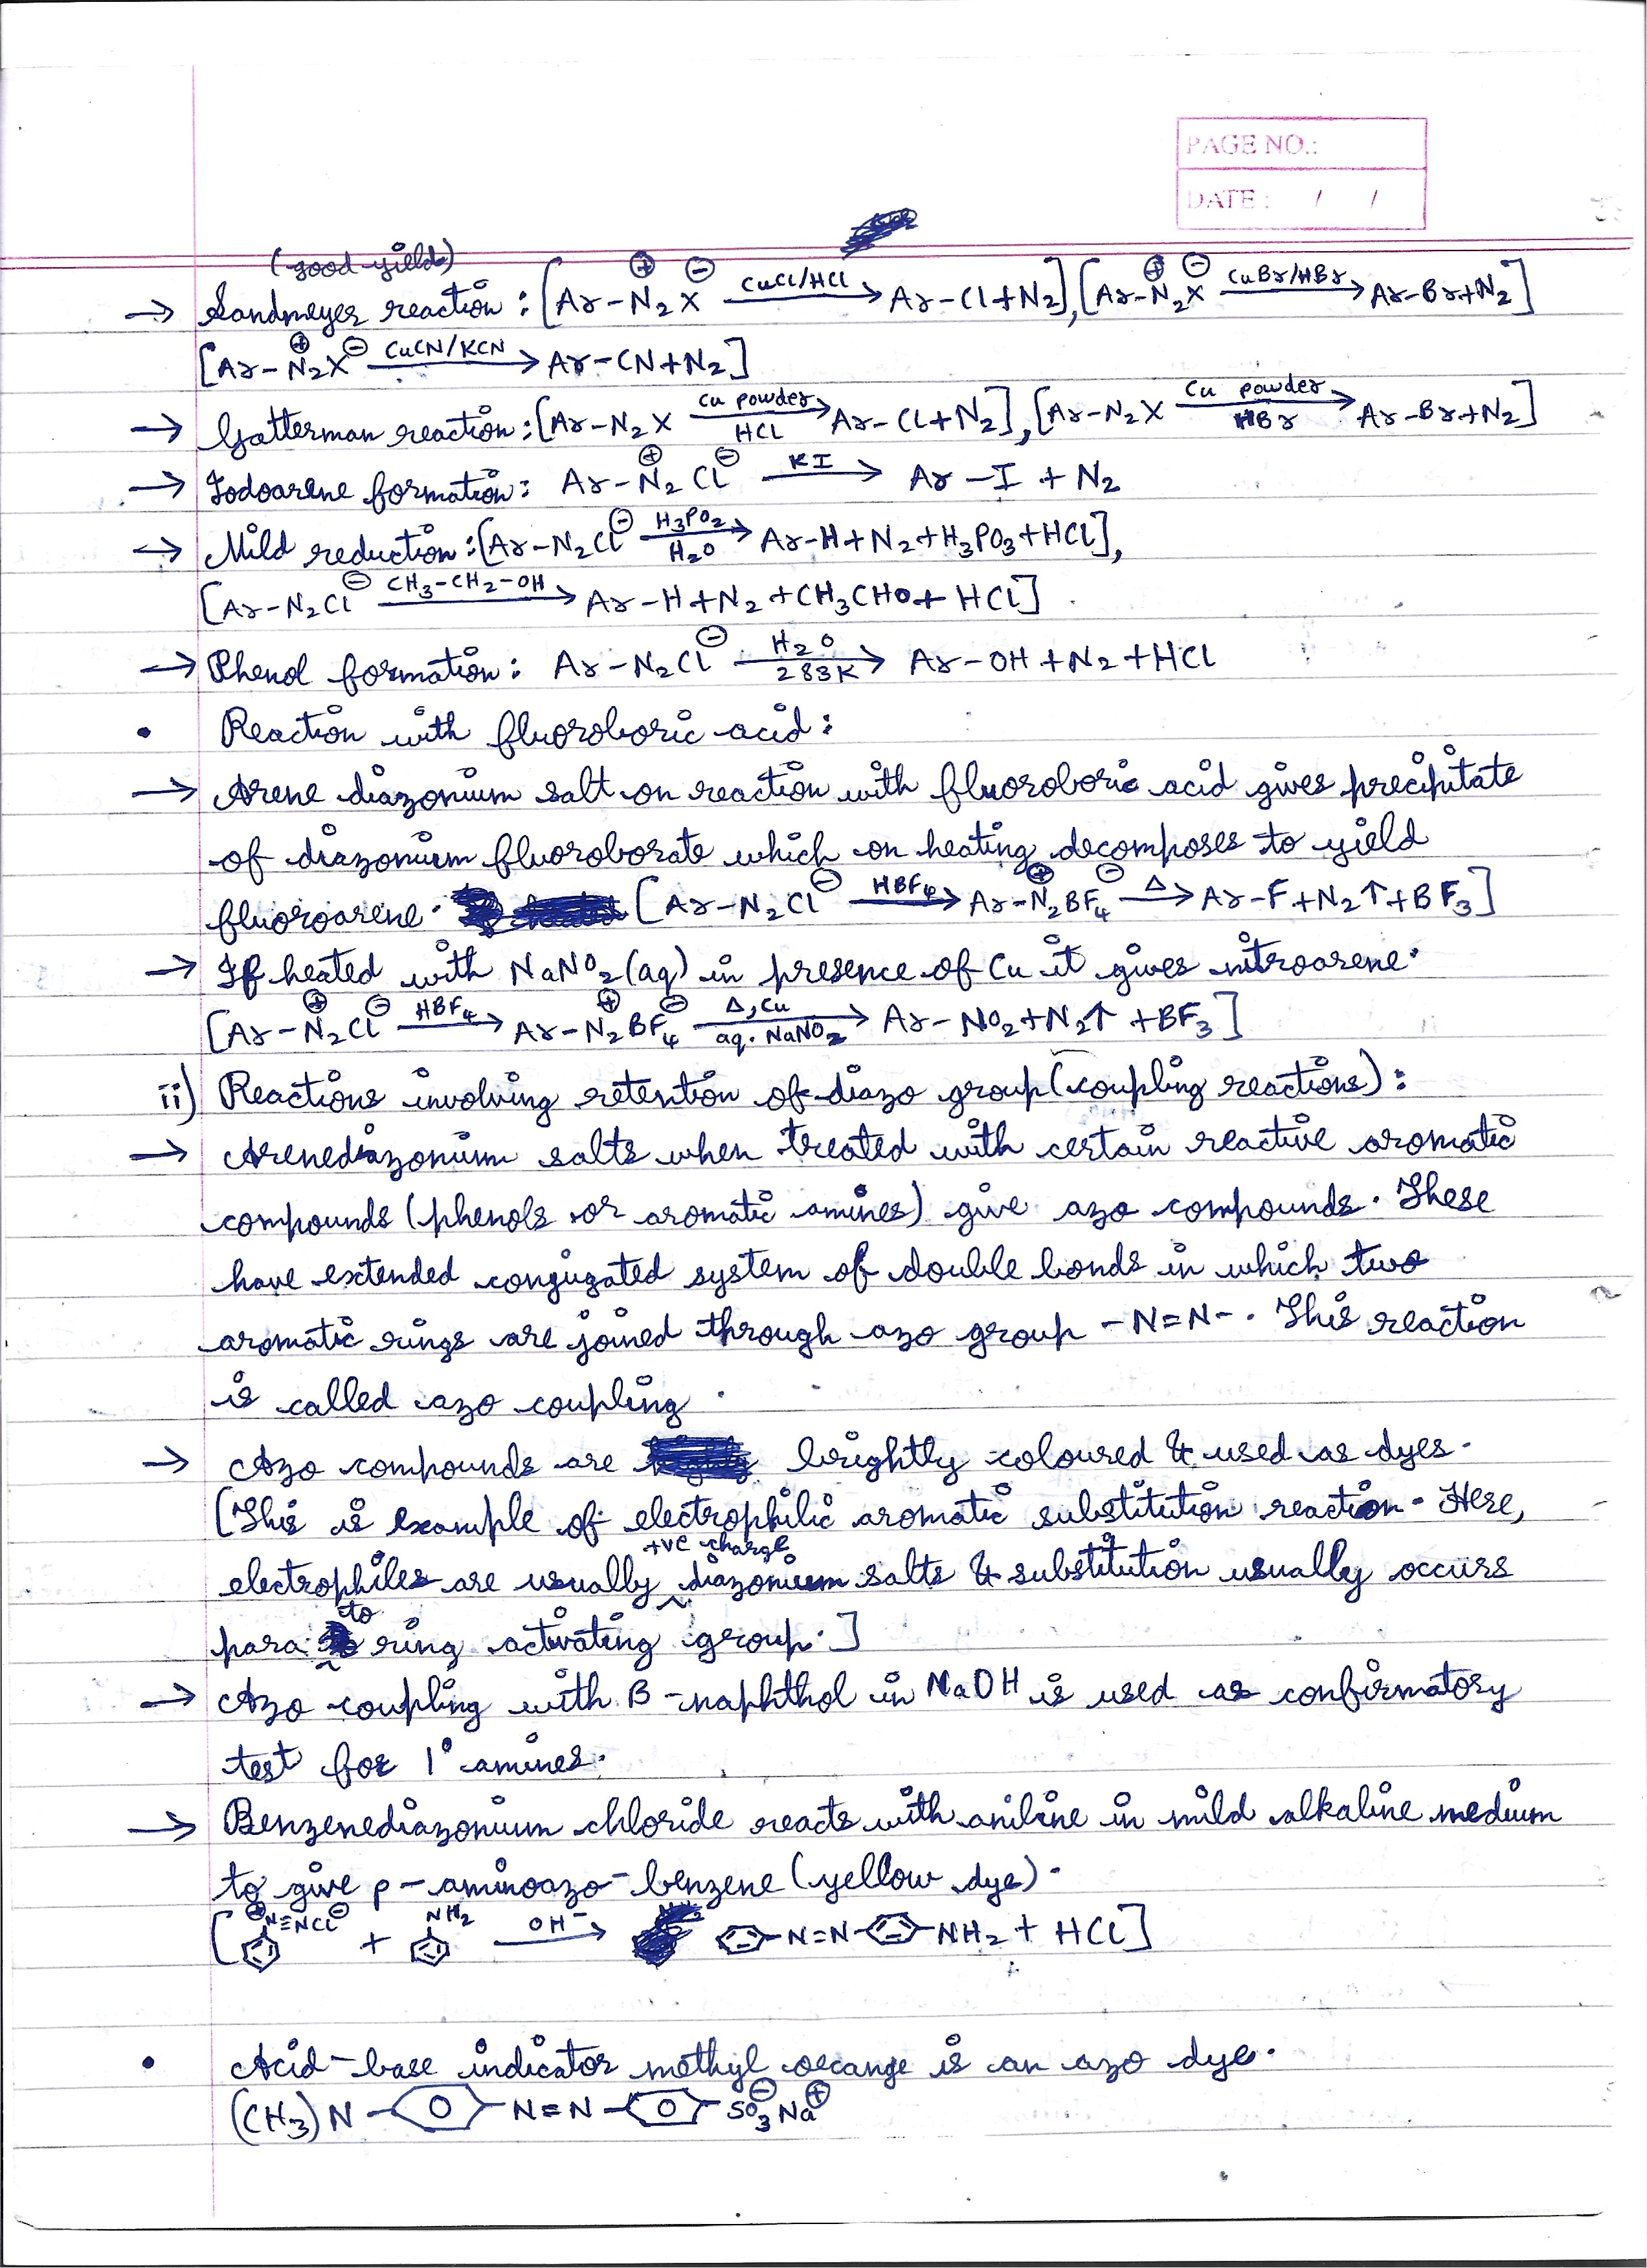 PAGE NO.:
DATE : / /
(good yields)
→ Sandmeyer reaction : [Ar-N₂⊕X⊖ —CuCl/HCl→ Ar-Cl+N₂], [Ar-N₂⊕X⊖ —CuBr/HBr→ Ar-Br+N₂]
[Ar-N₂⊕X⊖ —CuCN/KCN→ Ar-CN+N₂]
→ Gatterman reaction : [Ar-N₂X —Cu powder/HCl→ Ar-Cl+N₂], [Ar-N₂X —Cu powder/HBr→ Ar-Br+N₂]
→ Iodoarene formation : Ar-N₂⊕Cl⊖ —KI→ Ar-I + N₂
→ Mild reduction : [Ar-N₂Cl⊖ —H₃PO₂/H₂O→ Ar-H+N₂+H₃PO₃+HCl],
[Ar-N₂Cl⊖ —CH₃-CH₂-OH→ Ar-H+N₂+CH₃CHO+HCl]
→ Phenol formation : Ar-N₂Cl⊖ —H₂O/283K→ Ar-OH+N₂+HCl
• Reaction with fluoroboric acid :
→ Arene diazonium salt on reaction with fluoroboric acid gives precipitate
of diazonium fluoroborate which on heating decomposes to yield
fluoroarene. [Ar-N₂Cl⊖ —HBF₄→ Ar-N₂⊕BF₄⊖ —Δ→ Ar-F+N₂↑+BF₃]
→ If heated with NaNO₂(aq) in presence of Cu it gives nitroarene.
[Ar-N₂⊕Cl⊖ —HBF₄→ Ar-N₂⊕BF₄⊖ —Δ,Cu/aq. NaNO₂→ Ar-NO₂+N₂↑+BF₃]
ii) Reactions involving retention of diazo group (coupling reactions) :
→ Arenediazonium salts when treated with certain reactive aromatic
compounds (phenols or aromatic amines) give azo compounds. These
have extended conjugated system of double bonds in which two
aromatic rings are joined through azo group -N=N-. This reaction
is called azo coupling.
→ Azo compounds are brightly coloured & used as dyes.
[This is example of electrophilic aromatic substitution reaction. Here,
electrophiles are usually +ve charge diazonium salts & substitution usually occurs
para to ring activating group.]
→ Azo coupling with B-naphthol in NaOH is used as confirmatory
test for 1° amines.
→ Benzenediazonium chloride reacts with aniline in mild alkaline medium
to give p-aminoazo-benzene (yellow dye).
[⊕N≡NCl⊖ + NH₂ —OH⁻→ -N=N- -NH₂ + HCl]
• Acid-base indicator methyl orange is an azo dye.
(CH₃)N- -N=N- -SO₃⊖Na⊕